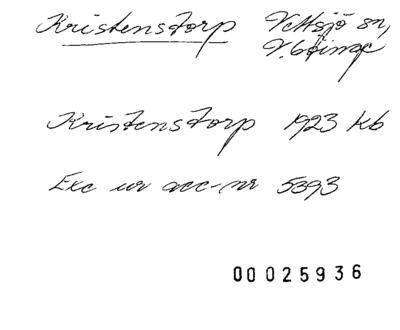 Kristenstorp Vittsjö sn,
V. Göinge
Kristenstorp 1923 kb
Exc ur acc-nr 5393
00025936